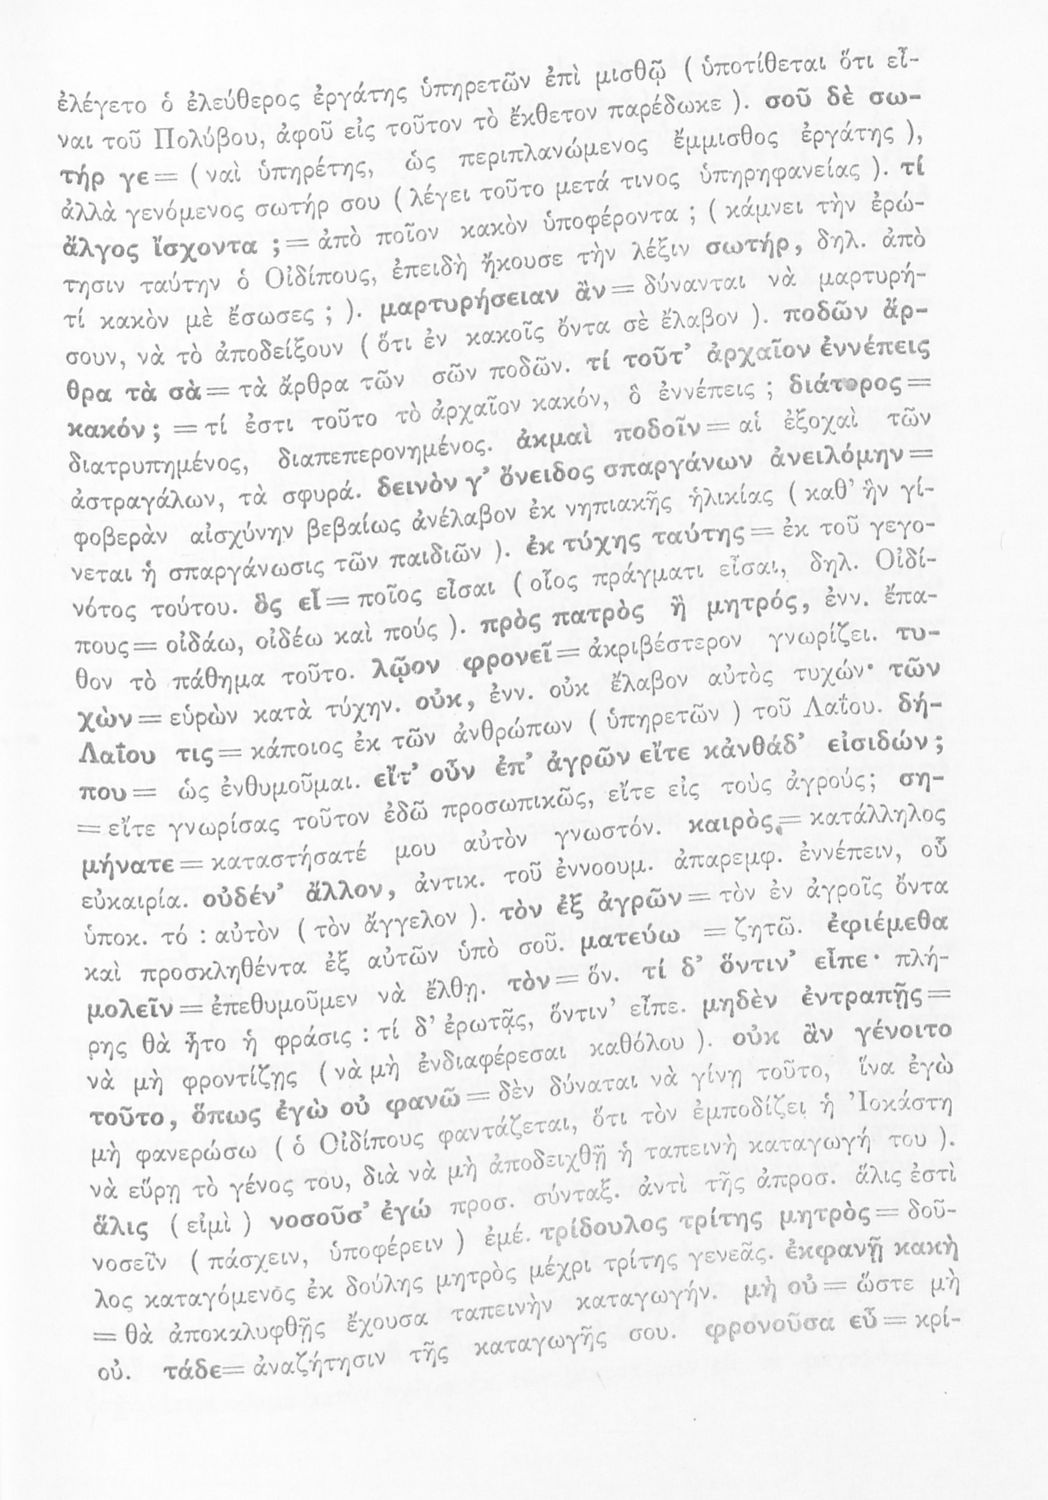 ἐλέγετο ὁ ἐλεύθερος ἐργάτης ὑπηρετῶν ἐπὶ μισθῷ ( ὑποτίθεται ὅτι εἶ-
ναι τοῦ Πολύβου, ἀφοῦ εἰς τοῦτον τὸ ἔκθετον παρέδωκε ). σοῦ δὲ σω-
τήρ γε= ( ναὶ ὑπηρέτης, ὡς περιπλανώμενος ἔμμισθος ἐργάτης ),
ἀλλὰ γενόμενος σωτήρ σου ( λέγει τοῦτο μετά τινος ὑπηρηφανείας ). τί
ἄλγος ἴσχοντα ;= ἀπὸ ποῖον κακὸν ὑποφέροντα ; ( κάμνει τὴν ἐρώ-
τησιν ταύτην ὁ Οἰδίπους, ἐπειδὴ ἤκουσε τὴν λέξιν σωτήρ, δηλ. ἀπὸ
τί κακὸν μὲ ἔσωσες ; ). μαρτυρήσειαν ἂν= δύνανται νὰ μαρτυρή-
σουν, νὰ τὸ ἀποδείξουν ( ὅτι ἐν κακοῖς ὄντα σὲ ἔλαβον ). ποδῶν ἄρ-
θρα τὰ σὰ= τὰ ἄρθρα τῶν σῶν ποδῶν. τί τοῦτ' ἀρχαῖον ἐννέπεις
κακόν ; =τί ἐστι τοῦτο τὸ ἀρχαῖον κακόν, ὃ ἐννέπεις ; διάτορος=
διατρυπημένος, διαπεπερονημένος. ἀκμαὶ ποδοῖν= αἱ ἐξοχαὶ τῶν
ἀστραγάλων, τὰ σφυρά. δεινὸν γ' ὄνειδος σπαργάνων ἀνειλόμην=
φοβερὰν αἰσχύνην βεβαίως ἀνέλαβον ἐκ νηπιακῆς ἡλικίας ( καθ' ἣν γί-
νεται ἡ σπαργάνωσις τῶν παιδιῶν ). ἐκ τύχης ταύτης= ἐκ τοῦ γεγο-
νότος τούτου. ὃς εἶ= ποῖος εἶσαι ( οἷος πράγματι εἶσαι, δηλ. Οἰδί-
πους= οἰδάω, οἰδέω καὶ πούς ). πρὸς πατρὸς ἢ μητρός, ἐνν. ἔπα-
θον τὸ πάθημα τοῦτο. λῷον φρονεῖ= ἀκριβέστερον γνωρίζει. τυ-
χὼν= εὑρὼν κατὰ τύχην. οὐκ, ἐνν. οὐκ ἔλαβον αὐτὸς τυχών· τῶν
Λαΐου τις= κάποιος ἐκ τῶν ἀνθρώπων ( ὑπηρετῶν ) τοῦ Λαΐου. δή-
που= ὡς ἐνθυμοῦμαι. εἴτ' οὖν ἐπ' ἀγρῶν εἴτε κἀνθάδ' εἰσιδών ;
=εἴτε γνωρίσας τοῦτον ἐδῶ προσωπικῶς, εἴτε εἰς τοὺς ἀγρούς; ση-
μήνατε= καταστήσατέ μου αὐτὸν γνωστόν. καιρὸς= κατάλληλος
εὐκαιρία. οὐδέν' ἄλλον, ἀντικ. τοῦ ἐννοουμ. ἀπαρεμφ. ἐννέπειν, οὗ
ὑποκ. τό : αὐτὸν ( τὸν ἄγγελον ). τὸν ἐξ ἀγρῶν= τὸν ἐν ἀγροῖς ὄντα
καὶ προσκληθέντα ἐξ αὐτῶν ὑπὸ σοῦ. ματεύω =ζητῶ. ἐφιέμεθα
μολεῖν= ἐπεθυμοῦμεν νὰ ἔλθῃ. τὸν= ὅν. τί δ' ὅντιν' εἶπε· πλή-
ρης θὰ ἦτο ἡ φράσις : τί δ' ἐρωτᾷς, ὅντιν' εἶπε. μηδὲν ἐντραπῇς=
νὰ μὴ φροντίζῃς ( νὰ μὴ ἐνδιαφέρεσαι καθόλου ). οὐκ ἂν γένοιτο
τοῦτο, ὅπως ἐγὼ οὐ φανῶ= δὲν δύναται νὰ γίνῃ τοῦτο, ἵνα ἐγὼ
μὴ φανερώσω ( ὁ Οἰδίπους φαντάζεται, ὅτι τὸν ἐμποδίζει ἡ Ἰοκάστη
νὰ εὕρῃ τὸ γένος του, διὰ νὰ μὴ ἀποδειχθῇ ἡ ταπεινὴ καταγωγή του ).
ἅλις ( εἰμὶ ) νοσοῦσ' ἐγώ προσ. σύνταξ. ἀντὶ τῆς ἀπροσ. ἅλις ἐστὶ
νοσεῖν ( πάσχειν, ὑποφέρειν ) ἐμέ. τρίδουλος τρίτης μητρὸς= δοῦ-
λος καταγόμενος ἐκ δούλης μητρὸς μέχρι τρίτης γενεᾶς. ἐκφανῇ κακὴ
=θὰ ἀποκαλυφθῇς ἔχουσα ταπεινὴν καταγωγήν. μὴ οὐ= ὥστε μὴ
οὐ. τάδε= ἀναζήτησιν τῆς καταγωγῆς σου. φρονοῦσα εὖ= κρί-